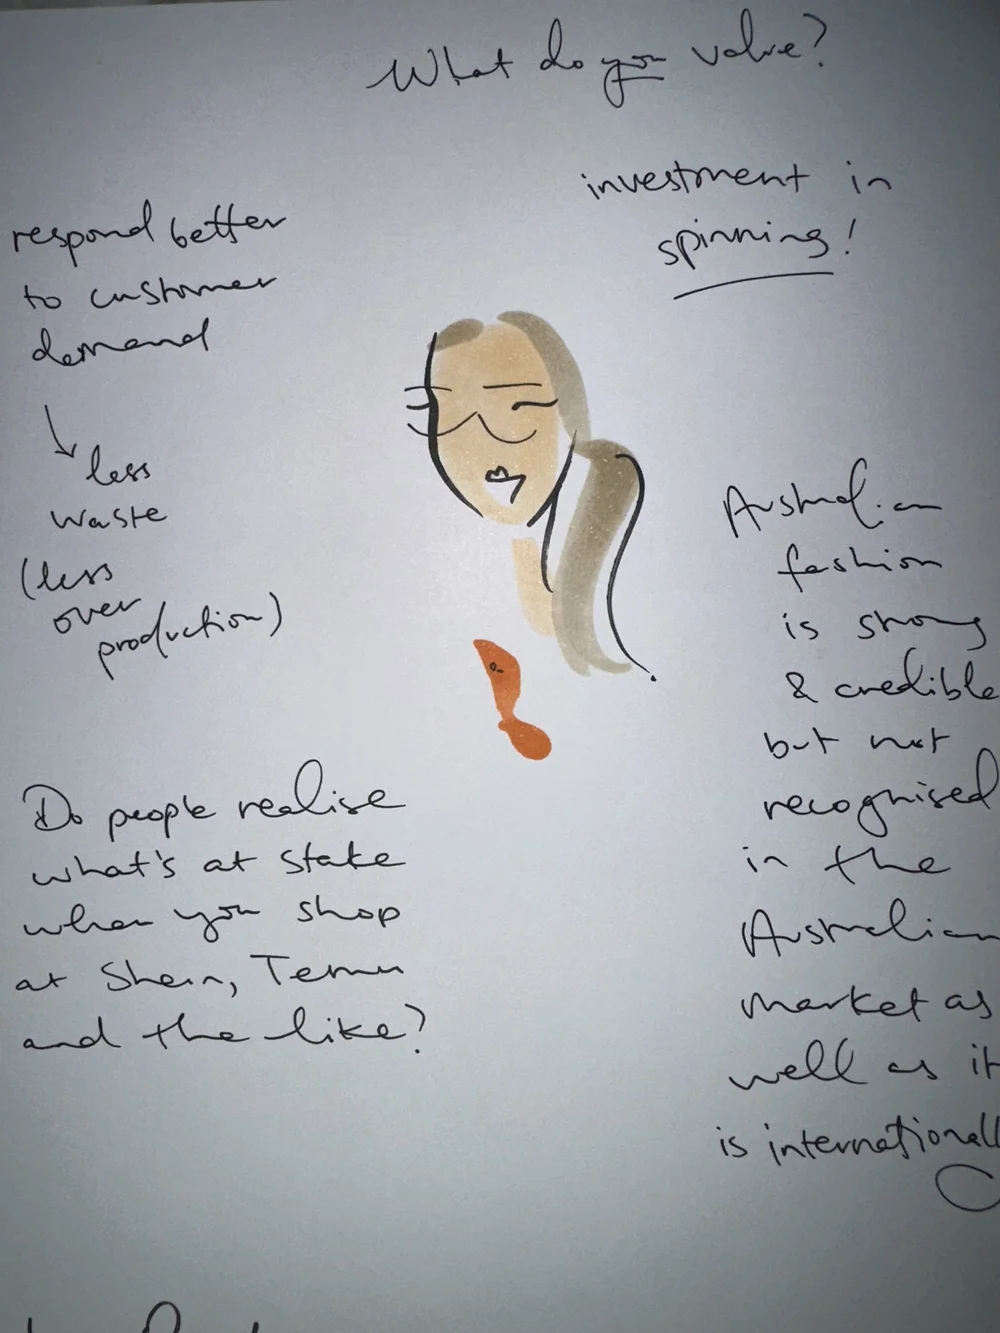 What do you value?
investment in
spinning!
respond better
to customer
demand
less
waste
(less
over
production)
Australian
fashion
is strong
& credible
but not
recognised
in the
Australian
market as
well as it
is internationall
Do people realise
what's at stake
when you shop
at Shein, Temu
and the like?